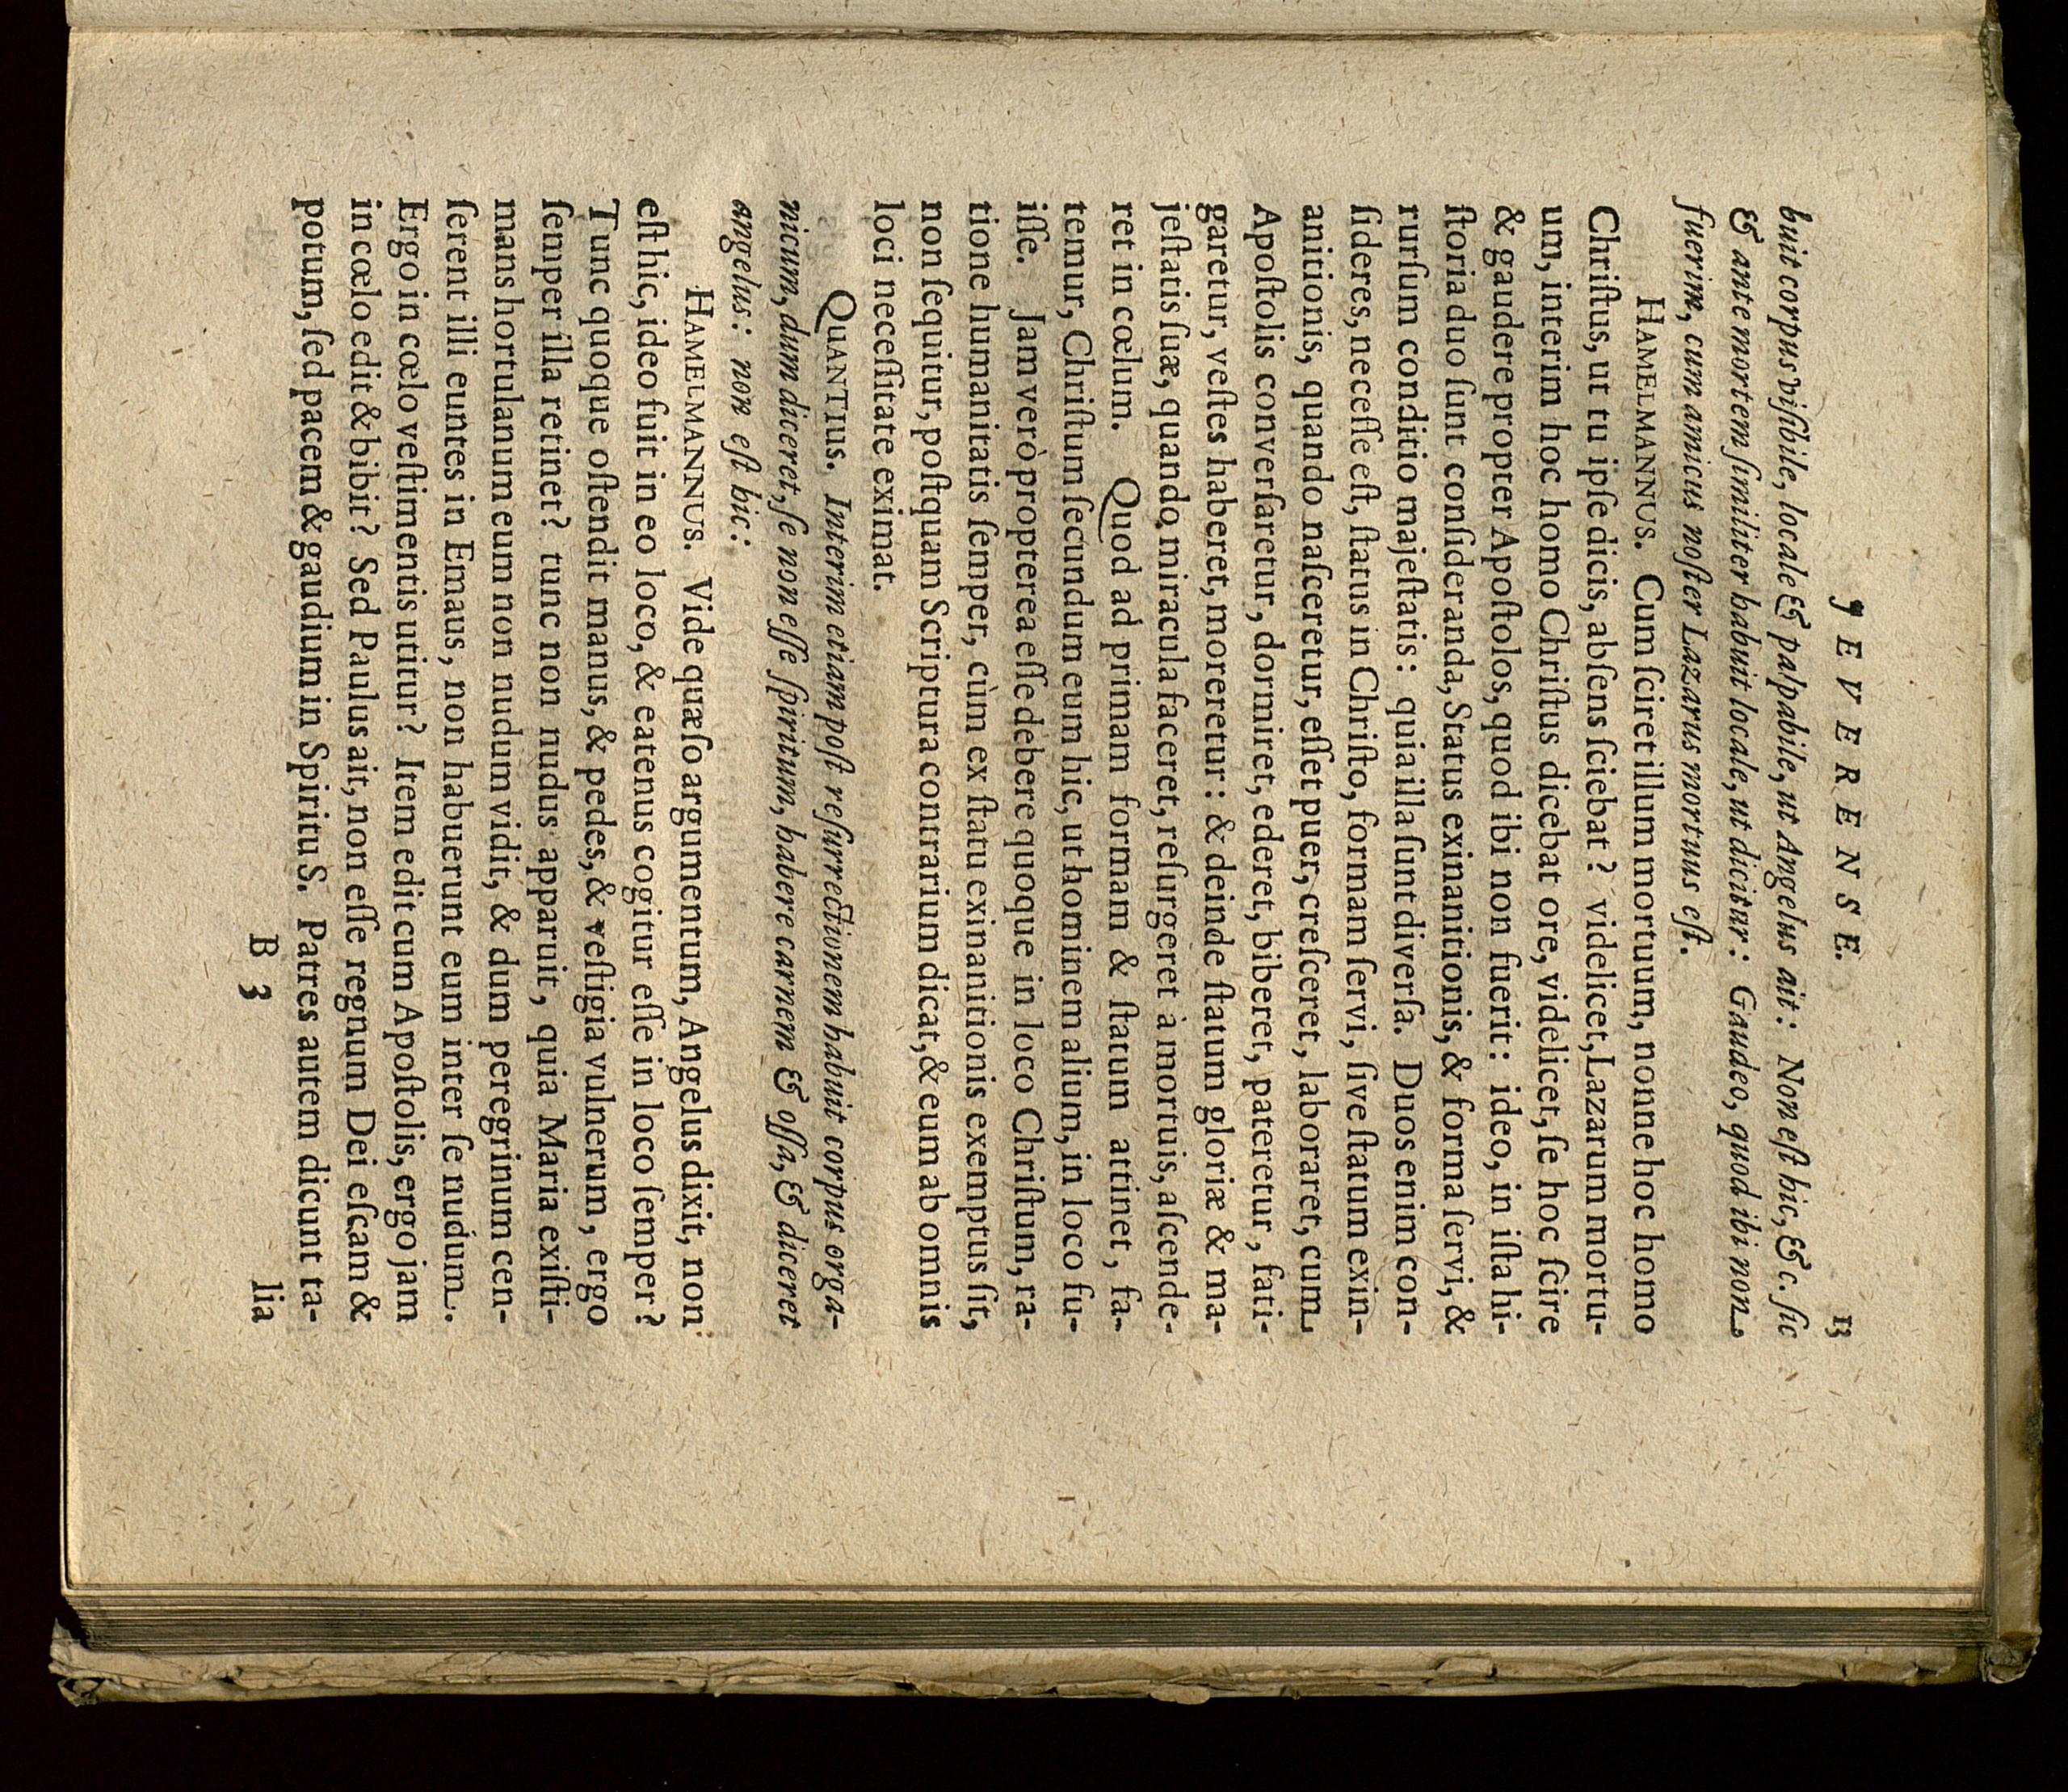 JEVERENSE. 13
buit corpus visibile, locale & palpabile, ut Angelus ait: Non est hic, &c. sic
& ante mortem similiter habuit locale, ut dicitur: Gaudeo, quod ibi non
fuerim, cum amicus noster Lazarus mortuus est.
HAMELMANNUS. Cum sciret illum mortuum, nonne hoc homo
Chriſtus, ut tu ipſe dicis, abſens ſciebat? videlicet, Lazarum mortu-
um, interim hoc homo Chriſtus dicebat ore, videlicet, ſe hoc ſcire
& gaudere propter Apoſtolos, quod ibi non fuerit: ideo, in iſta hi-
ſtoria duo ſunt conſideranda, Status exinanitionis, & forma ſervi, &
rurſum conditio majeſtatis: quia illa ſunt diverſa. Duos enim con-
ſideres, neceſſe eſt, ſtatus in Chriſto, formam ſervi, ſive ſtatum exin-
anitionis, quando naſceretur, eſſet puer, creſceret, laboraret, cum
Apoſtolis converſaretur, dormiret, ederet, biberet, pateretur, fati-
garetur, veſtes haberet, moreretur: & deinde ſtatum gloriæ & ma-
jeſtatis ſuæ, quando miracula faceret, reſurgeret à mortuis, aſcende-
ret in cœlum. Quod ad primam formam & ſtatum attinet, fa-
temur, Chriſtum ſecundum eum hic, ut hominem alium, in loco fu-
iſſe. Jam verò propterea eſſe debere quoque in loco Chriſtum, ra-
tione humanitatis ſemper, cùm ex ſtatu exinanitionis exemptus ſit,
non ſequitur, poſtquam Scriptura contrarium dicat, & eum ab omnis
loci neceſſitate eximat.
QUANTIUS. Interim etiam poſt reſurrectionem habuit corpus orga-
nicum, dum diceret, ſe non eſſe ſpiritum, habere carnem & oſſa, & diceret
angelus: non eſt hic:
HAMELMANNUS. Vide quæſo argumentum, Angelus dixit, non
eſt hic, ideo fuit in eo loco, & eatenus cogitur eſſe in loco ſemper?
Tunc quoque oſtendit manus, & pedes, & veſtigia vulnerum, ergo
ſemper illa retinet? tunc non nudus apparuit, quia Maria exiſti-
mans hortulanum eum non nudum vidit, & dum peregrinum cen-
ſerent illi euntes in Emaus, non habuerunt eum inter ſe nudum.
Ergo in cœlo veſtimentis utitur? Item edit cum Apoſtolis, ergo jam
in cœlo edit & bibit? Sed Paulus ait, non eſſe regnum Dei eſcam &
potum, ſed pacem & gaudium in Spiritu S. Patres autem dicunt ta-
B 3 lia